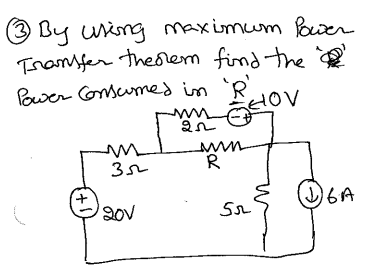 ③ By using maximum Power
Transfer theorem find the
Power Consumed in 'R'
10V
2Ω
3Ω
R
20V
5Ω
6A